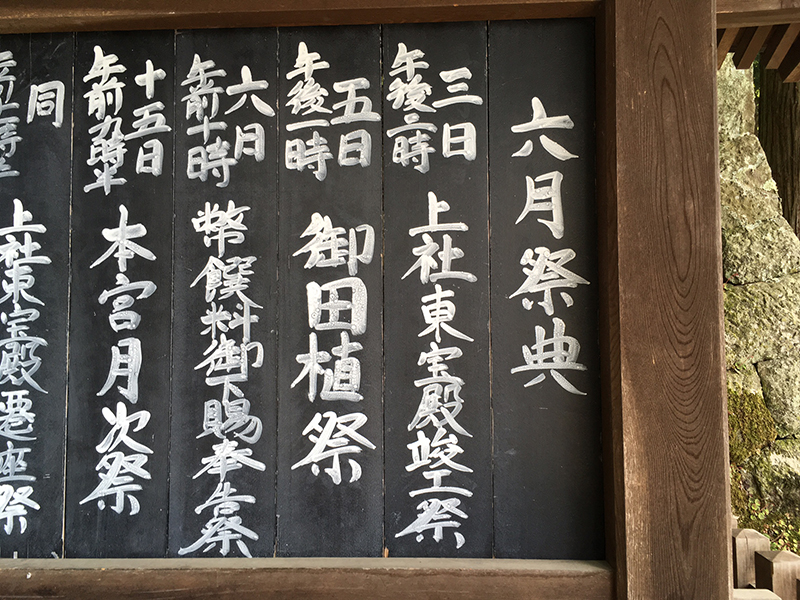 六月祭典
三日
午後二時
上社東宝殿竣工祭
五日
午後一時
御田植祭
六月
午前十時
幣饌料御下賜奉告祭
十五日
午前九時半
本宮月次祭
同
上社東宝殿遷座祭